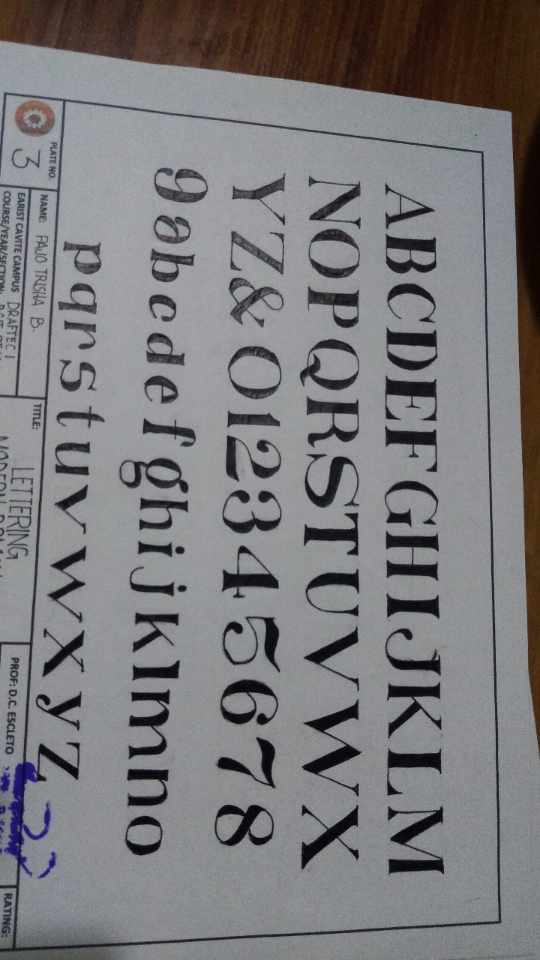 ABCDEFGHIJKLM
NOPQRSTUVWX
YZ&012345678
9abcdefghijklmno
pqrstuvwxyz
PLATE NO.
3
NAME: PAJO TRISHA B.
EARIST CAVITE CAMPUS DRAFTEC 1
COURSE/YEAR/SECTION:
TITLE:
LETTERING
PROF: D.C. ESCLETO
RATING: